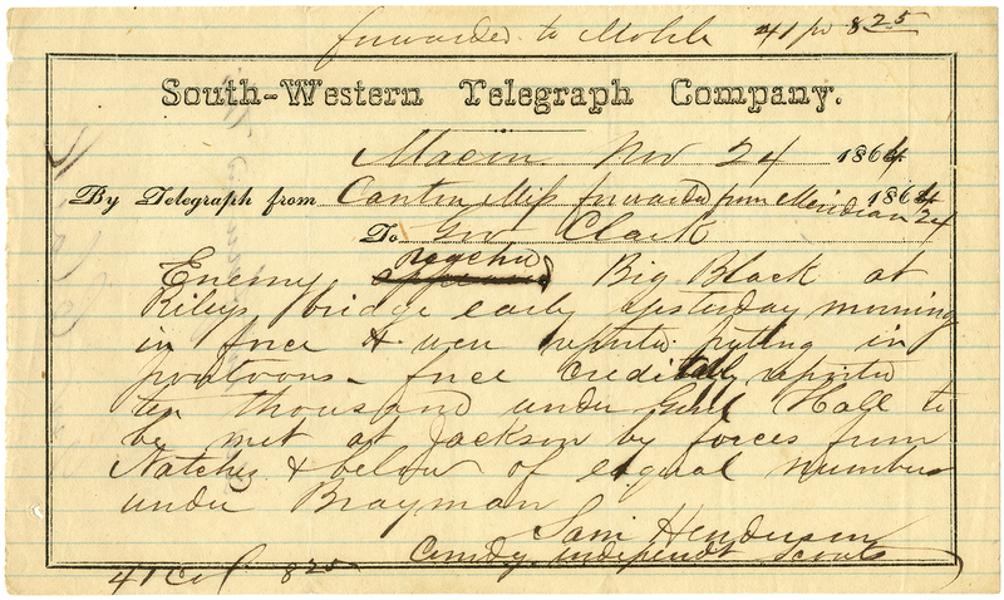 forwarded to Mobile 41 pd 8 25
South-Western Telegraph Company.
Macon Nov 24 1864
By Telegraph from Canton Miss forwarded from Meridian 24 1864
To Gov Clark
reached
Enemy Big Black at
Rileys bridge early yesterday morning
in force & were reported putting in
pontoons – force creditably reported
ten thousand under Genl Hall to
be met at Jackson by forces from
Natchez & below of elqual number
under Brayman
Sam Henderson
Comdg independt Scouts
41 Col 8 25